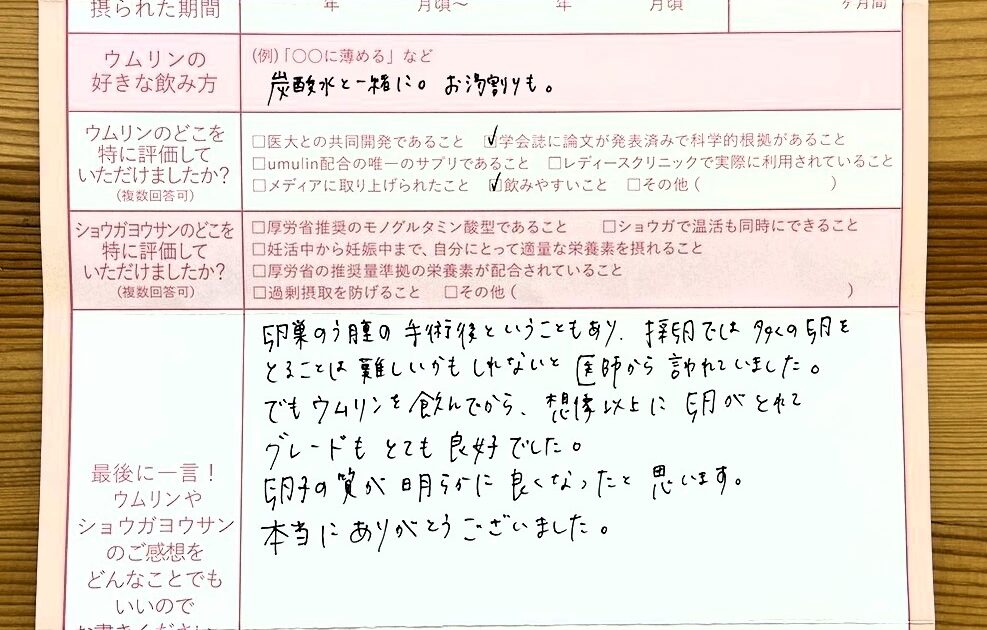 摂られた期間
年 月頃〜 年 月頃
ヶ月間
ウムリンの
好きな飲み方
(例)「○○に薄める」など
炭酸水と一緒に。お湯割りも。
ウムリンのどこを
特に評価して
いただけましたか?
(複数回答可)
□医大との共同開発であること ☑学会誌に論文が発表済みで科学的根拠があること
□umulin配合の唯一のサプリであること □レディースクリニックで実際に利用されていること
□メディアに取り上げられたこと ☑飲みやすいこと □その他( )
ショウガヨウサンのどこを
特に評価して
いただけましたか?
(複数回答可)
□厚労省推奨のモノグルタミン酸型であること □ショウガで温活も同時にできること
□妊活中から妊娠中まで、自分にとって適量な栄養素を摂れること
□厚労省の推奨量準拠の栄養素が配合されていること
□過剰摂取を防げること □その他( )
最後に一言!
ウムリンや
ショウガヨウサン
のご感想を
どんなことでも
いいので
卵巣のう腫の手術後ということもあり、採卵では多くの卵を
とることは難しいかもしれないと医師から言われていました。
でもウムリンを飲んでから、想像以上に卵がとれて
グレードもとても良好でした。
卵子の質が明らかに良くなったと思います。
本当にありがとうございました。